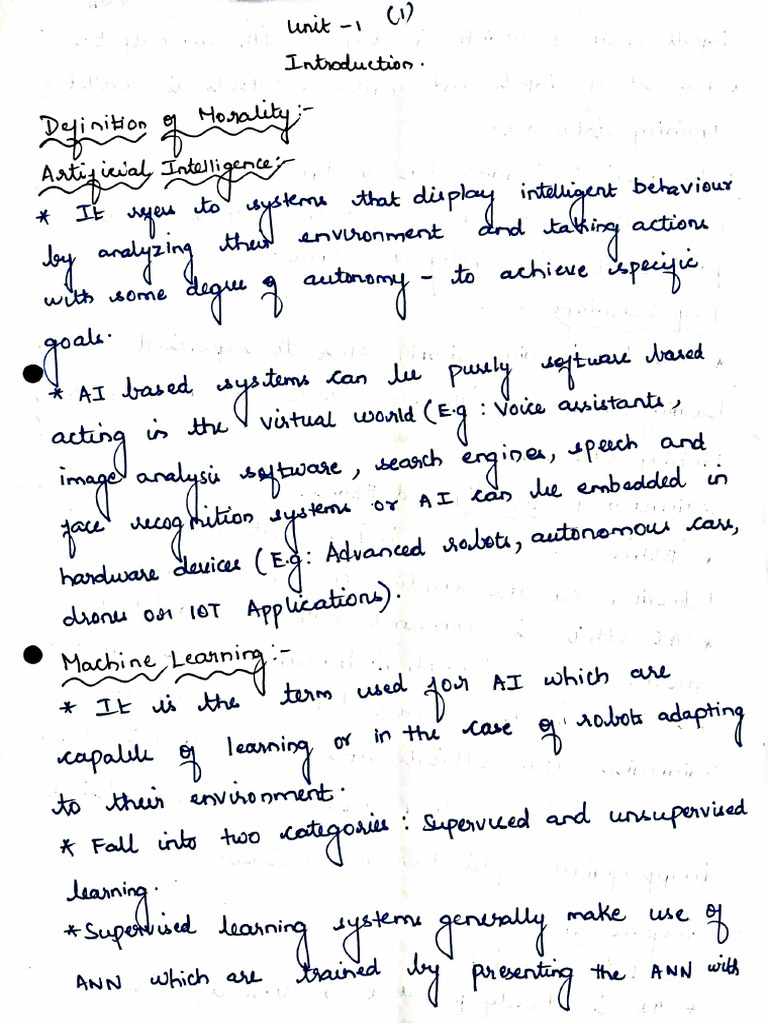 Unit -1 (1)
Introduction.
Definition of Morality:-
Artificial Intelligence:-
* It refers to systems that display intelligent behaviour
by analyzing their environment and taking actions
with some degree of autonomy - to achieve specific
goals.
* AI based systems can be purely software based
acting in the virtual world (E.g : Voice assistants,
image analysis software, search engines, speech and
face recognition systems or AI can be embedded in
hardware devices (E.g: Advanced robots, autonomous cars,
drones or IOT Applications).
Machine Learning:-
* It is the term used for AI which are
capable of learning or in the case of robots adapting
to their environment.
* Fall into two categories : Supervised and unsupervised
learning.
* Supervised learning systems generally make use of
ANN which are trained by presenting the ANN with